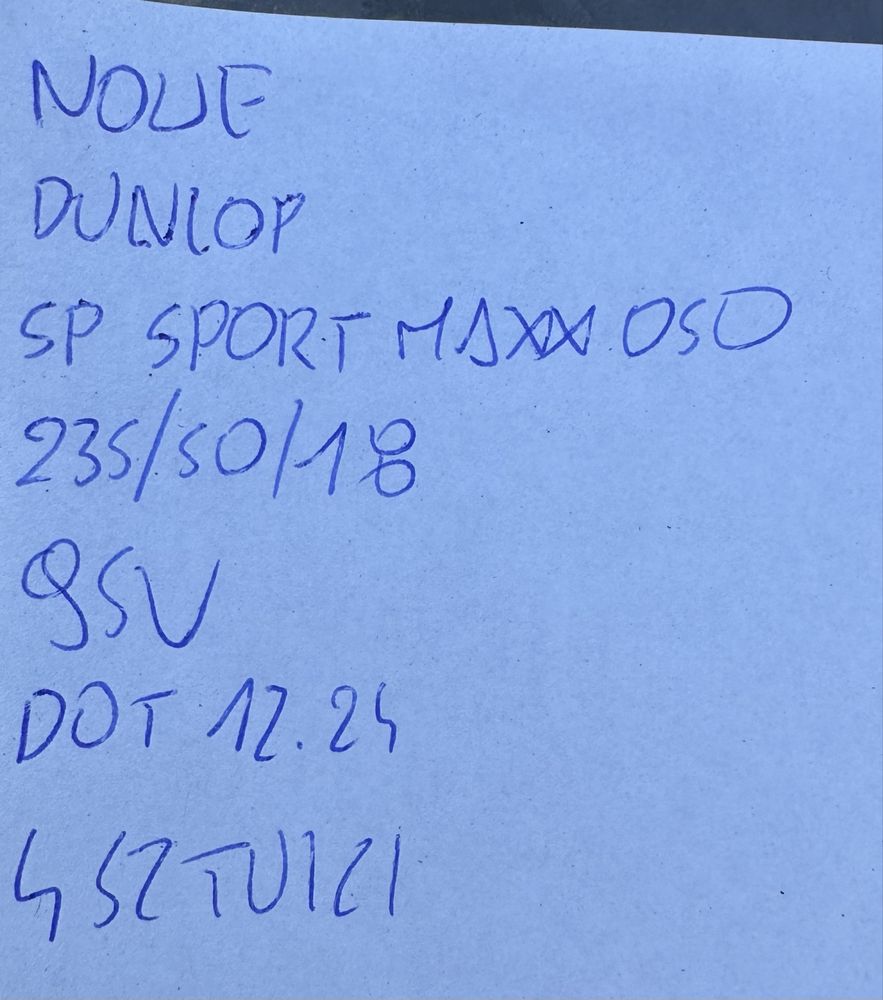 NOWE
DUNLOP
SP SPORT MAXX 050
235/50/18
95V
DOT 12.24
4 SZTUKI